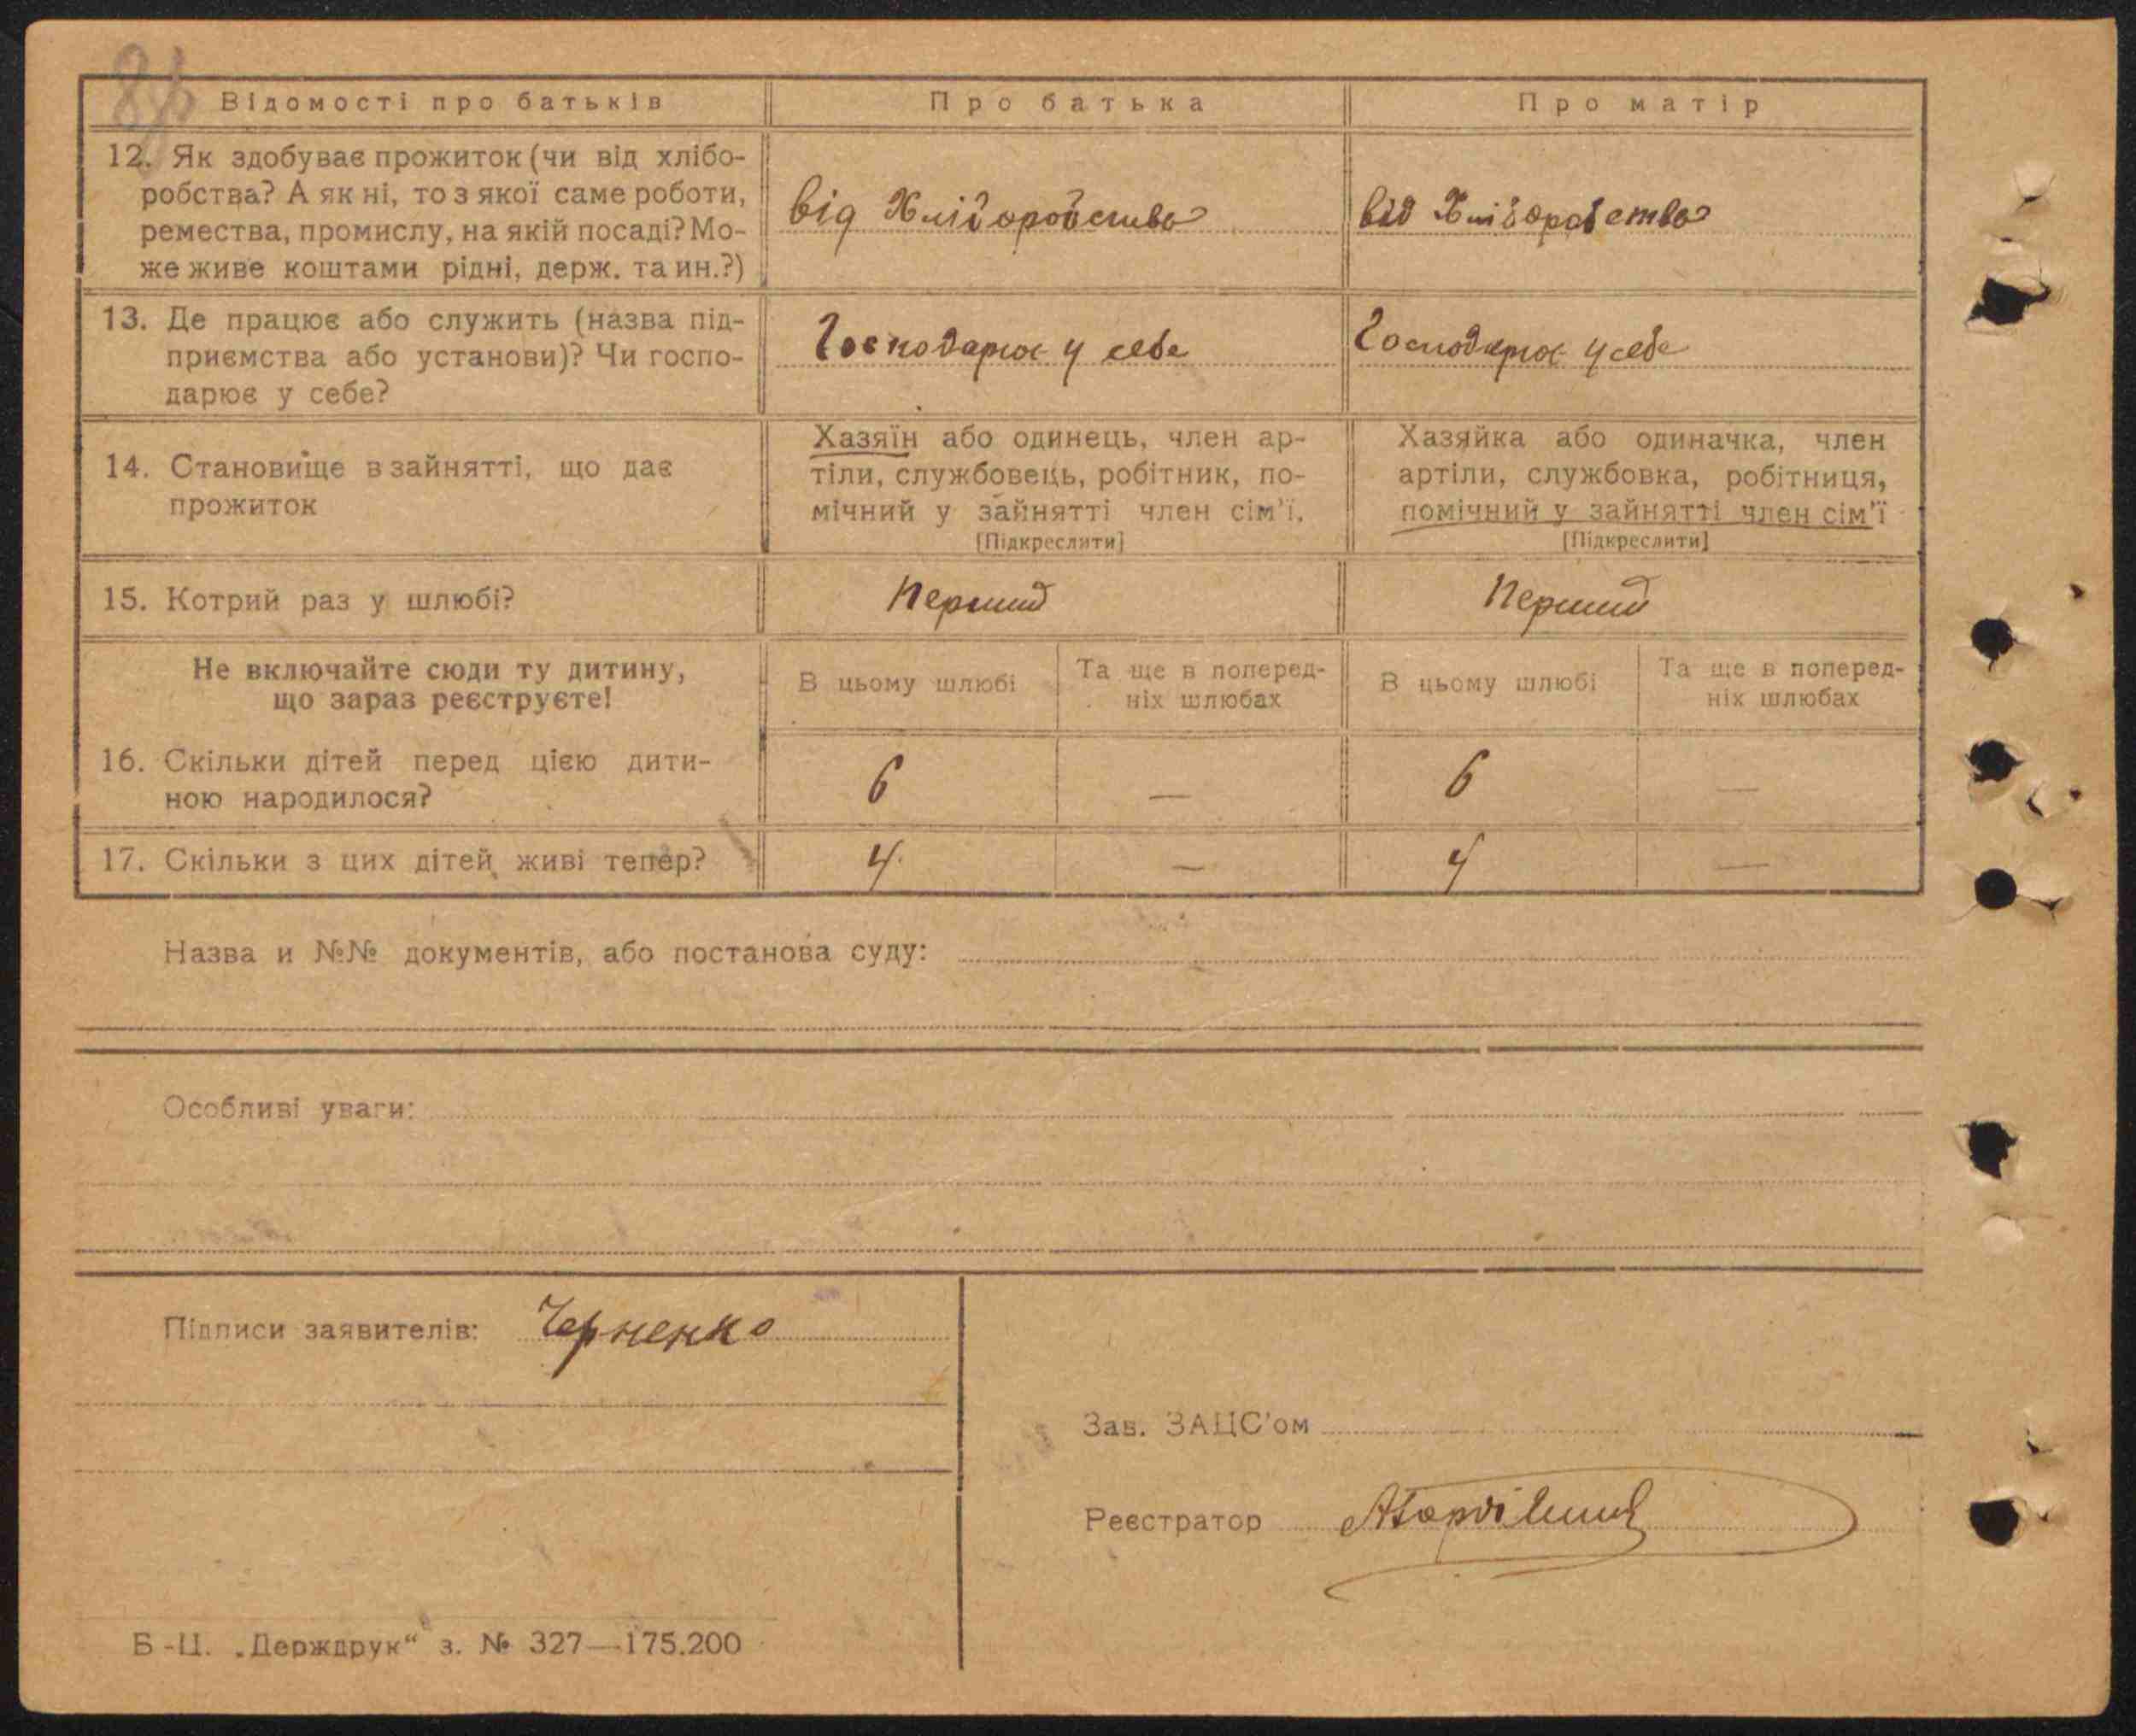 Відомості про батьків
Про батька
Про матір
12. Як здобуває прожиток (чи від хлібо-
робства? А як ні, то з якої саме роботи,
ремества, промислу, на якій посаді? Мо-
же живе коштами рідні, держ. та ин.?)
від Хліборобства
від Хліборобства
13. Де працює або служить (назва під-
приємства або установи)? Чи госпо-
дарює у себе?
Господарює у себе
Господарює у себе
14. Становище в зайнятті, що дає
прожиток
Хазяїн або одинець, член ар-
тіли, службовець, робітник, по-
мічний у зайнятті член сім'ї.
[Підкреслити]
Хазяйка або одиначка, член
артіли, службовка, робітниця,
помічний у зайнятті член сім'ї
[Підкреслити]
15. Котрий раз у шлюбі?
Перший
Перший
Не включайте сюди ту дитину,
що зараз реєструєте!
В цьому шлюбі
Та ще в поперед-
ніх шлюбах
В цьому шлюбі
Та ще в поперед-
ніх шлюбах
16. Скільки дітей перед цією дити-
ною народилося?
6
—
6
—
17. Скільки з цих дітей живі тепер?
4
—
4
—
Назва и №№ документів, або постанова суду:
Особливі уваги:
Підписи заявителів: Черненко
Зав. ЗАЦС'ом
Реєстратор
Б-Ц. „Держдрук“ з. № 327—175.200